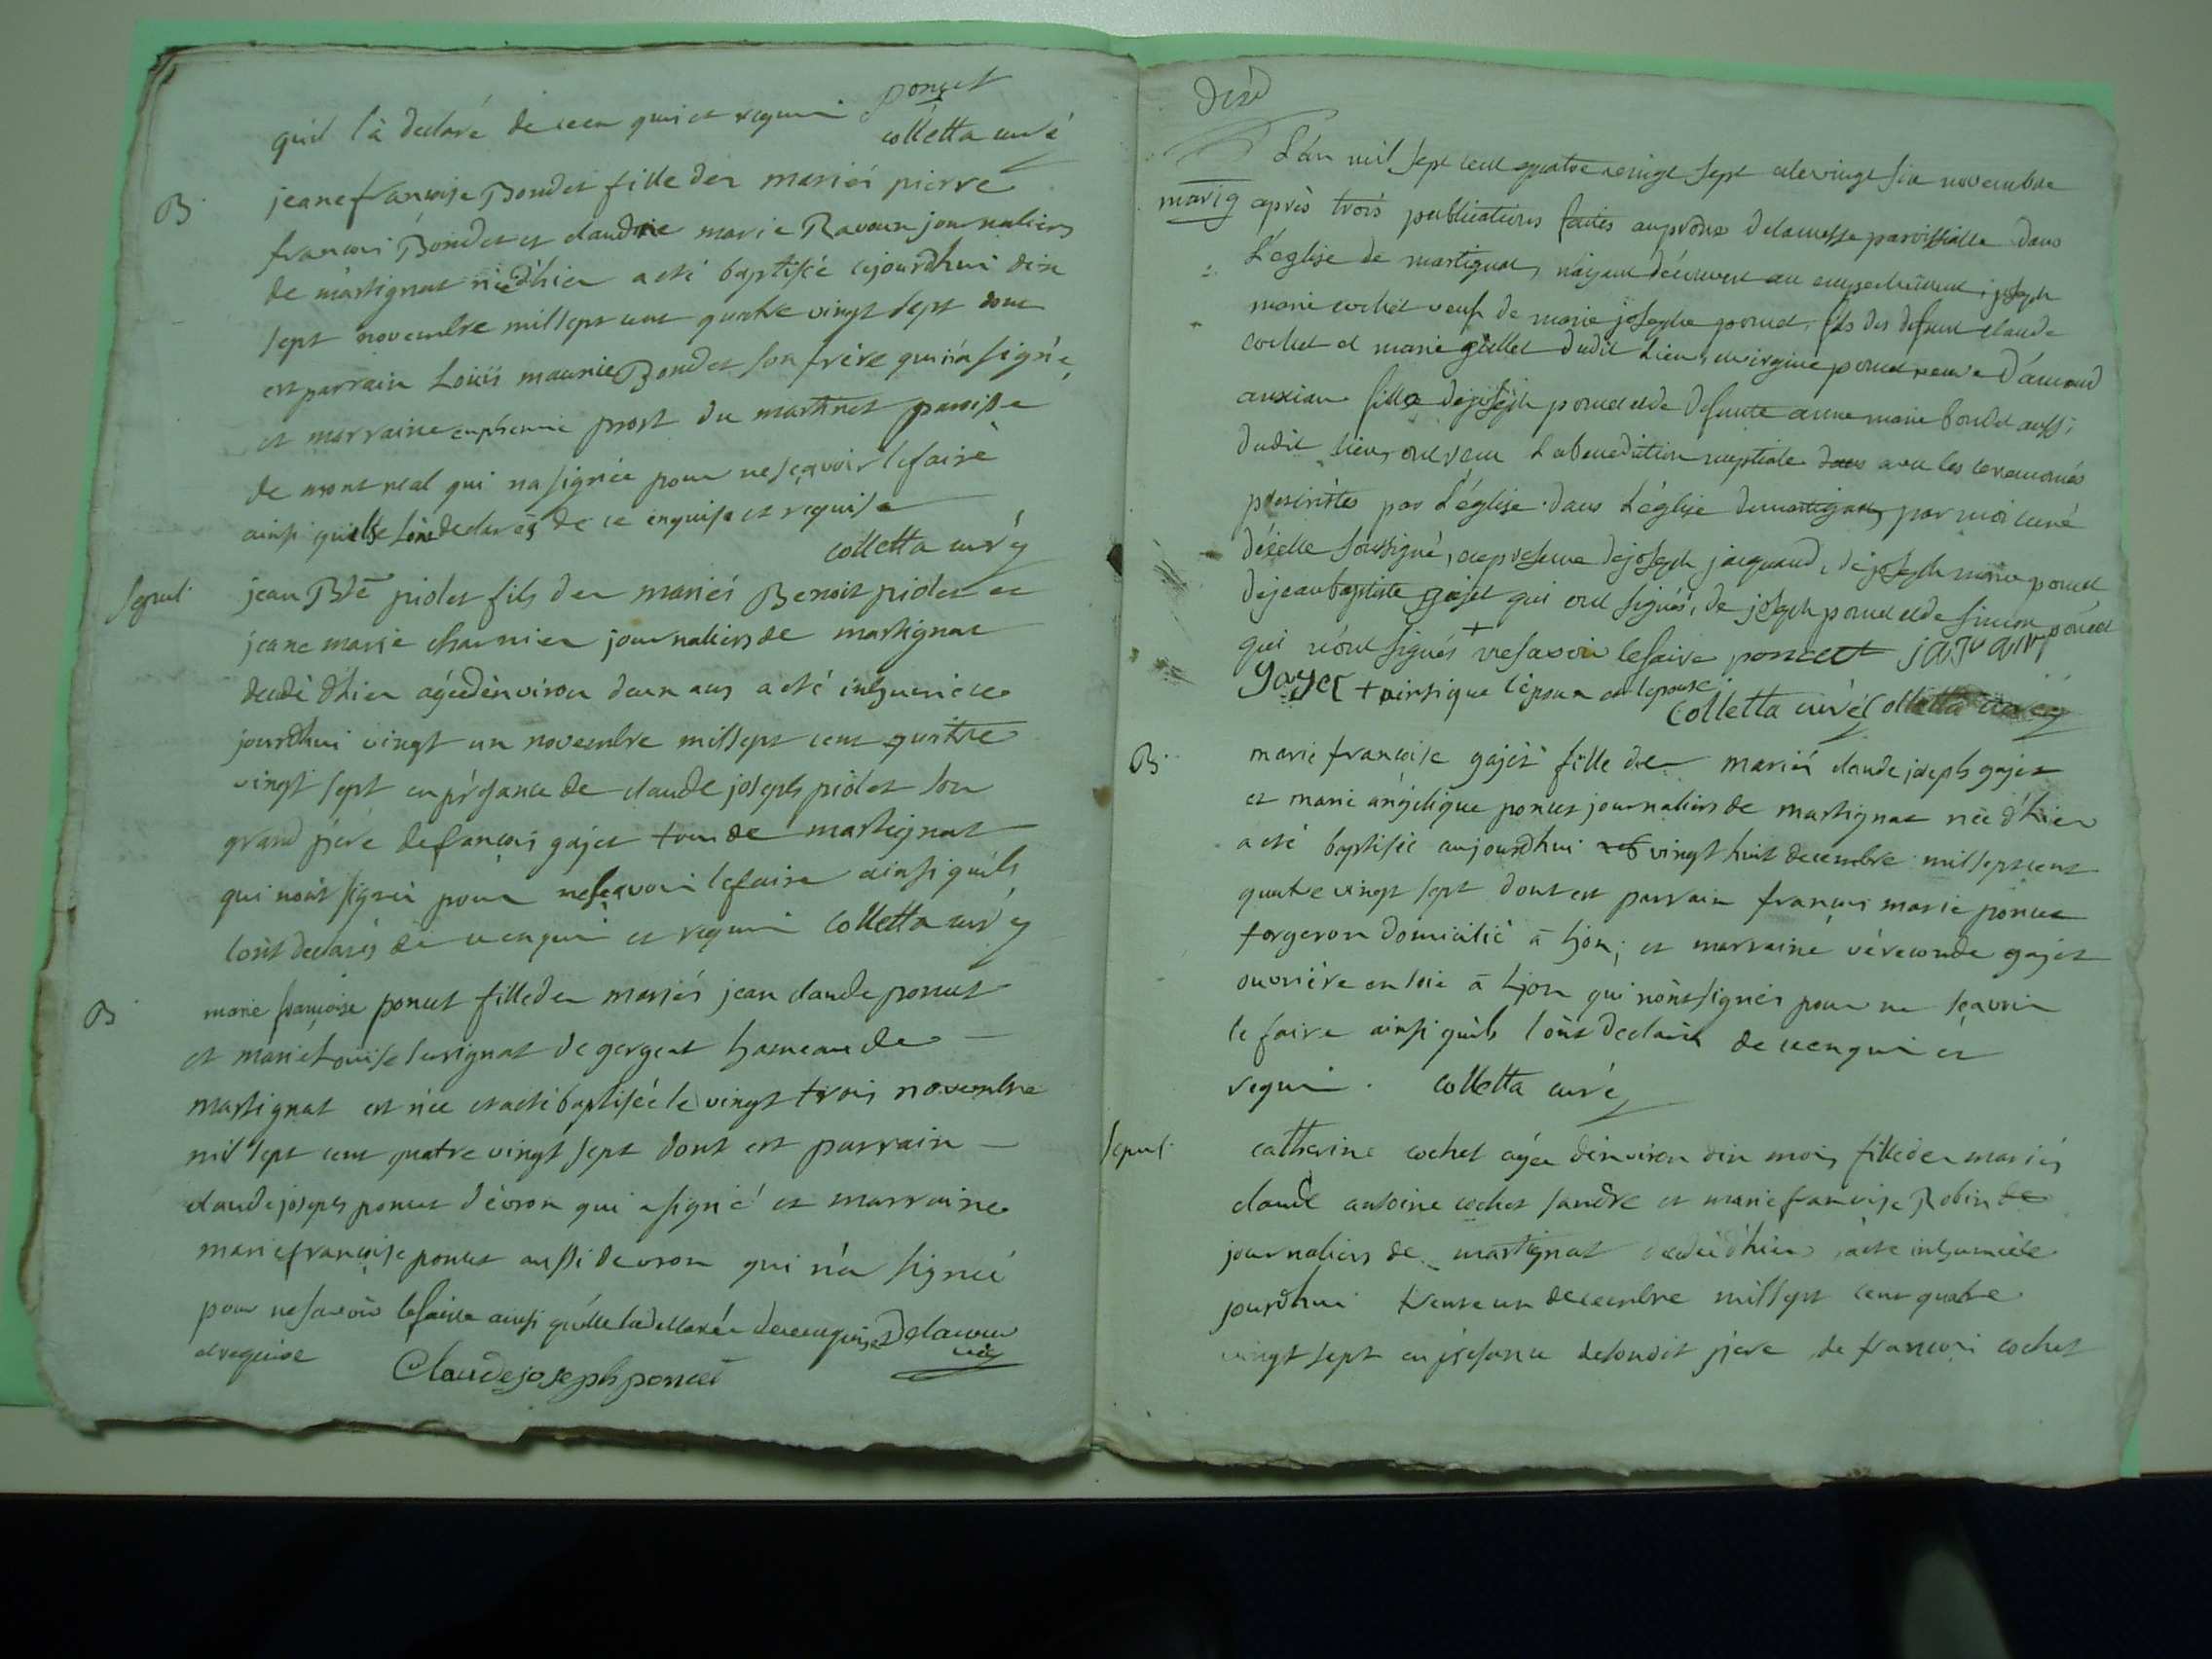 qu'il l'à declaré de ce en quis et requis poncet
colletta curé
B. jeane francoise Bondet fille des mariés pierre
francois Bondet et claudine marie Ravaux journaliers
de martignat née d'hier a eté baptisée cejourdhui dix
sept novembre mil sept cent quatre vingt sept dont
est parrain Loüis maurice Bondet son frère qui n'a signé
et marraine euphemie prost du martinet paroisse
de montreal qui na signée pour ne sçavoir le faire
ainsi quils l'ont declarés de ce enquise et requise
colletta curé
Sepul. jean Bte piolet fils des mariés Benoit piolet et
jeane marie charnier journaliers de martignat
decedé d'hier agé d'environ deux ans a eté inhumé ce
jourdhui vingt un novembre mil sept cent quatre
vingt sept en présance de claude joseph piolet son
grand père de francois gajet tous de martignat
qui n'ont signés pour ne sçavoir le faire ainsi quils
l'ont declarés de ce enquis et requis colletta curé
B marie francoise poncet fille des mariés jean claude poncet
et marie Louise savignat de gergeat hameau de
martignat est née et a eté baptisée le vingt trois novembre
mil sept cent quatre vingt sept dont est parrain
claude joseph poncet d'évron qui a signé et marraine
marie francoise poncet aussi devron qui n'a signée
pour ne savoir le faire ainsi qu'elle l'a declarée de ce enquise Delacour
et requise Claude joseph poncet vic
L'an mil sept cent quatre vingt sept et le vingt six novembre
mariag après trois publications faites au prone de la messe paroissialle dans
L'eglise de martignat, n'ayant découvert au empechement, joseph
marie cochet veuf de marie josephe poncet, fils des defunt claude
cochet et marie gillet dudit Lieu, et virginie poncet veuve D'amand
fille de joseph poncet et de defunte anne marie bondet aussi
dudit Lieu, ont reçu La benediction nuptiale dans avec les ceremonies
prescrites par L'église dans L'église de martignat par moi curé
d'icelle soussigné, en presence de joseph jaquand, de joseph marie poncet
de jean baptiste gajet qui ont signés, de joseph poncet et de simon poncet
qui n'ont signés + ne savoir le faire poncet jaquand
gayet + ainsi que l'epoux et l'epouse
colletta curé Colletta curé
B. marie francoise gajet fille des mariés claude joseph gajet
et marie angélique poncet journaliers de martignat née d'hier
a eté baptisée aujourdhui vingt huit decembre mil sept cent
quatre vingt sept dont est parrain francois marie poncet
forgeron domicilié à Lyon; et marraine véréconde gajet
ouvrière en soie à Lyon qui n'ont signés pour ne sçavoir
le faire ainsi quils l'ont declaré de ce enquis et
requis. colletta curé
sepul. catherine cochet agée d'environ dix mois fille des mariés
claude antoine cochet sandre et marie francoise Robin de
journaliers de martignat decedée d'hier a eté inhumée ce
jourdhui trente un decembre mil sept cent quatre
vingt sept en présance de sondit père de francois cochet